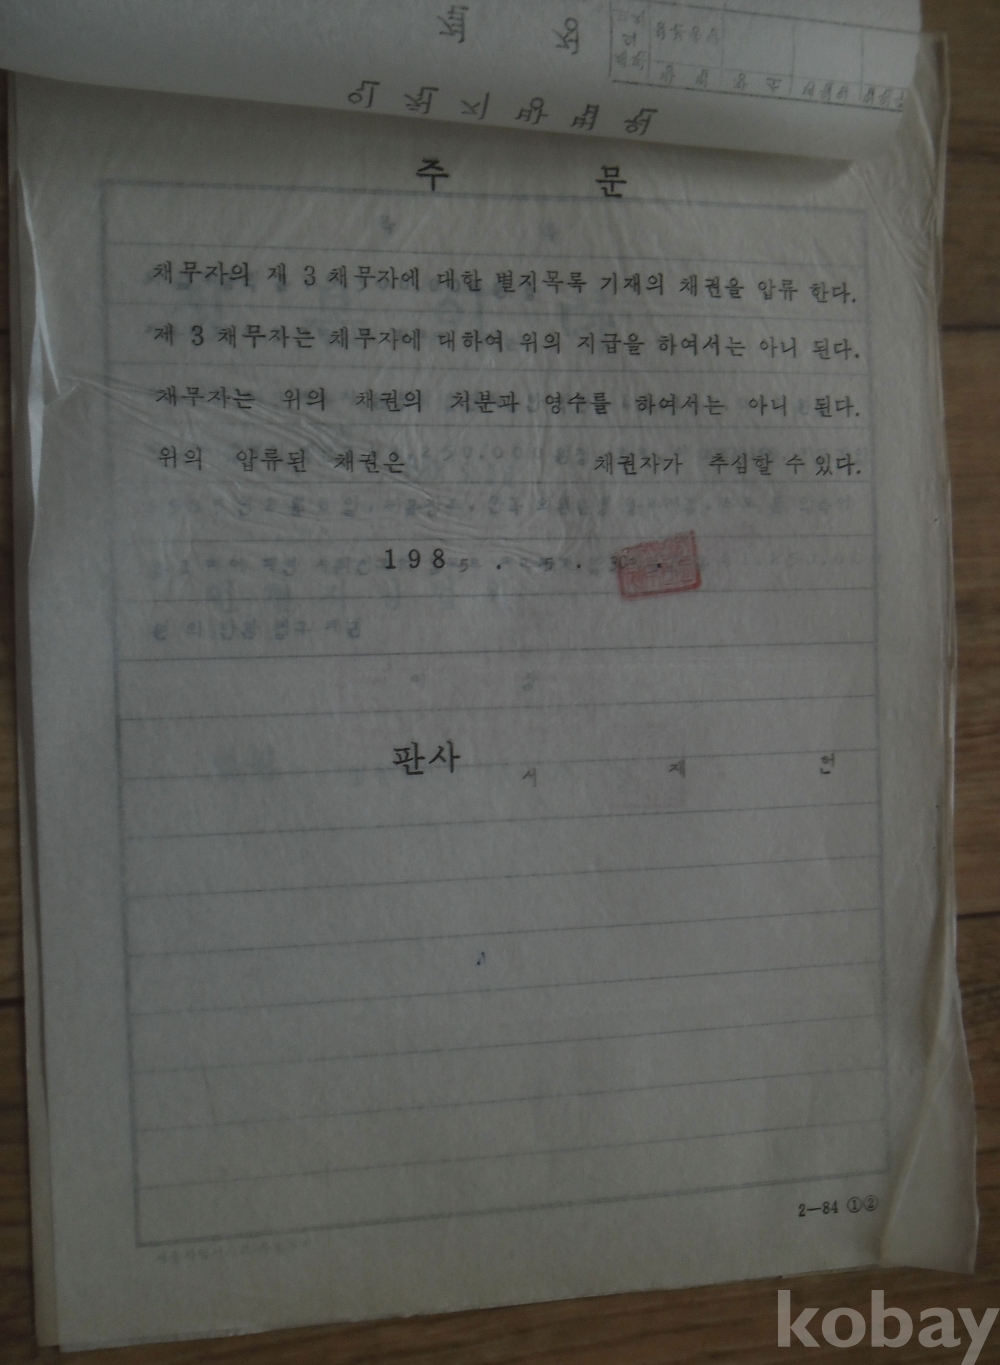 주 문
채무자의 제 3 채무자에 대한 별지목록 기재의 채권을 압류 한다.
제 3 채무자는 채무자에 대하여 위의 지급을 하여서는 아니 된다.
채무자는 위의 채권의 처분과 영수를 하여서는 아니 된다.
위의 압류된 채권은 채권자가 추심할 수 있다.
1985 . 5 . 30 .
판사 서 재 헌
2—84 ①②
kobay